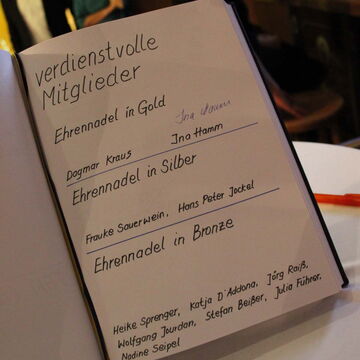 verdienstvolle
Mitglieder
Ehrennadel in Gold
Ina Hamm
Dagmar Kraus Ina Hamm
Ehrennadel in Silber
Frauke Sauerwein, Hans Peter Jockel
Ehrennadel in Bronze
Heike Sprenger, Katja D'Addona, Jörg Raiß,
Wolfgang Jourdan, Stefan Beißer, Julia Führer,
Nadine Seipel